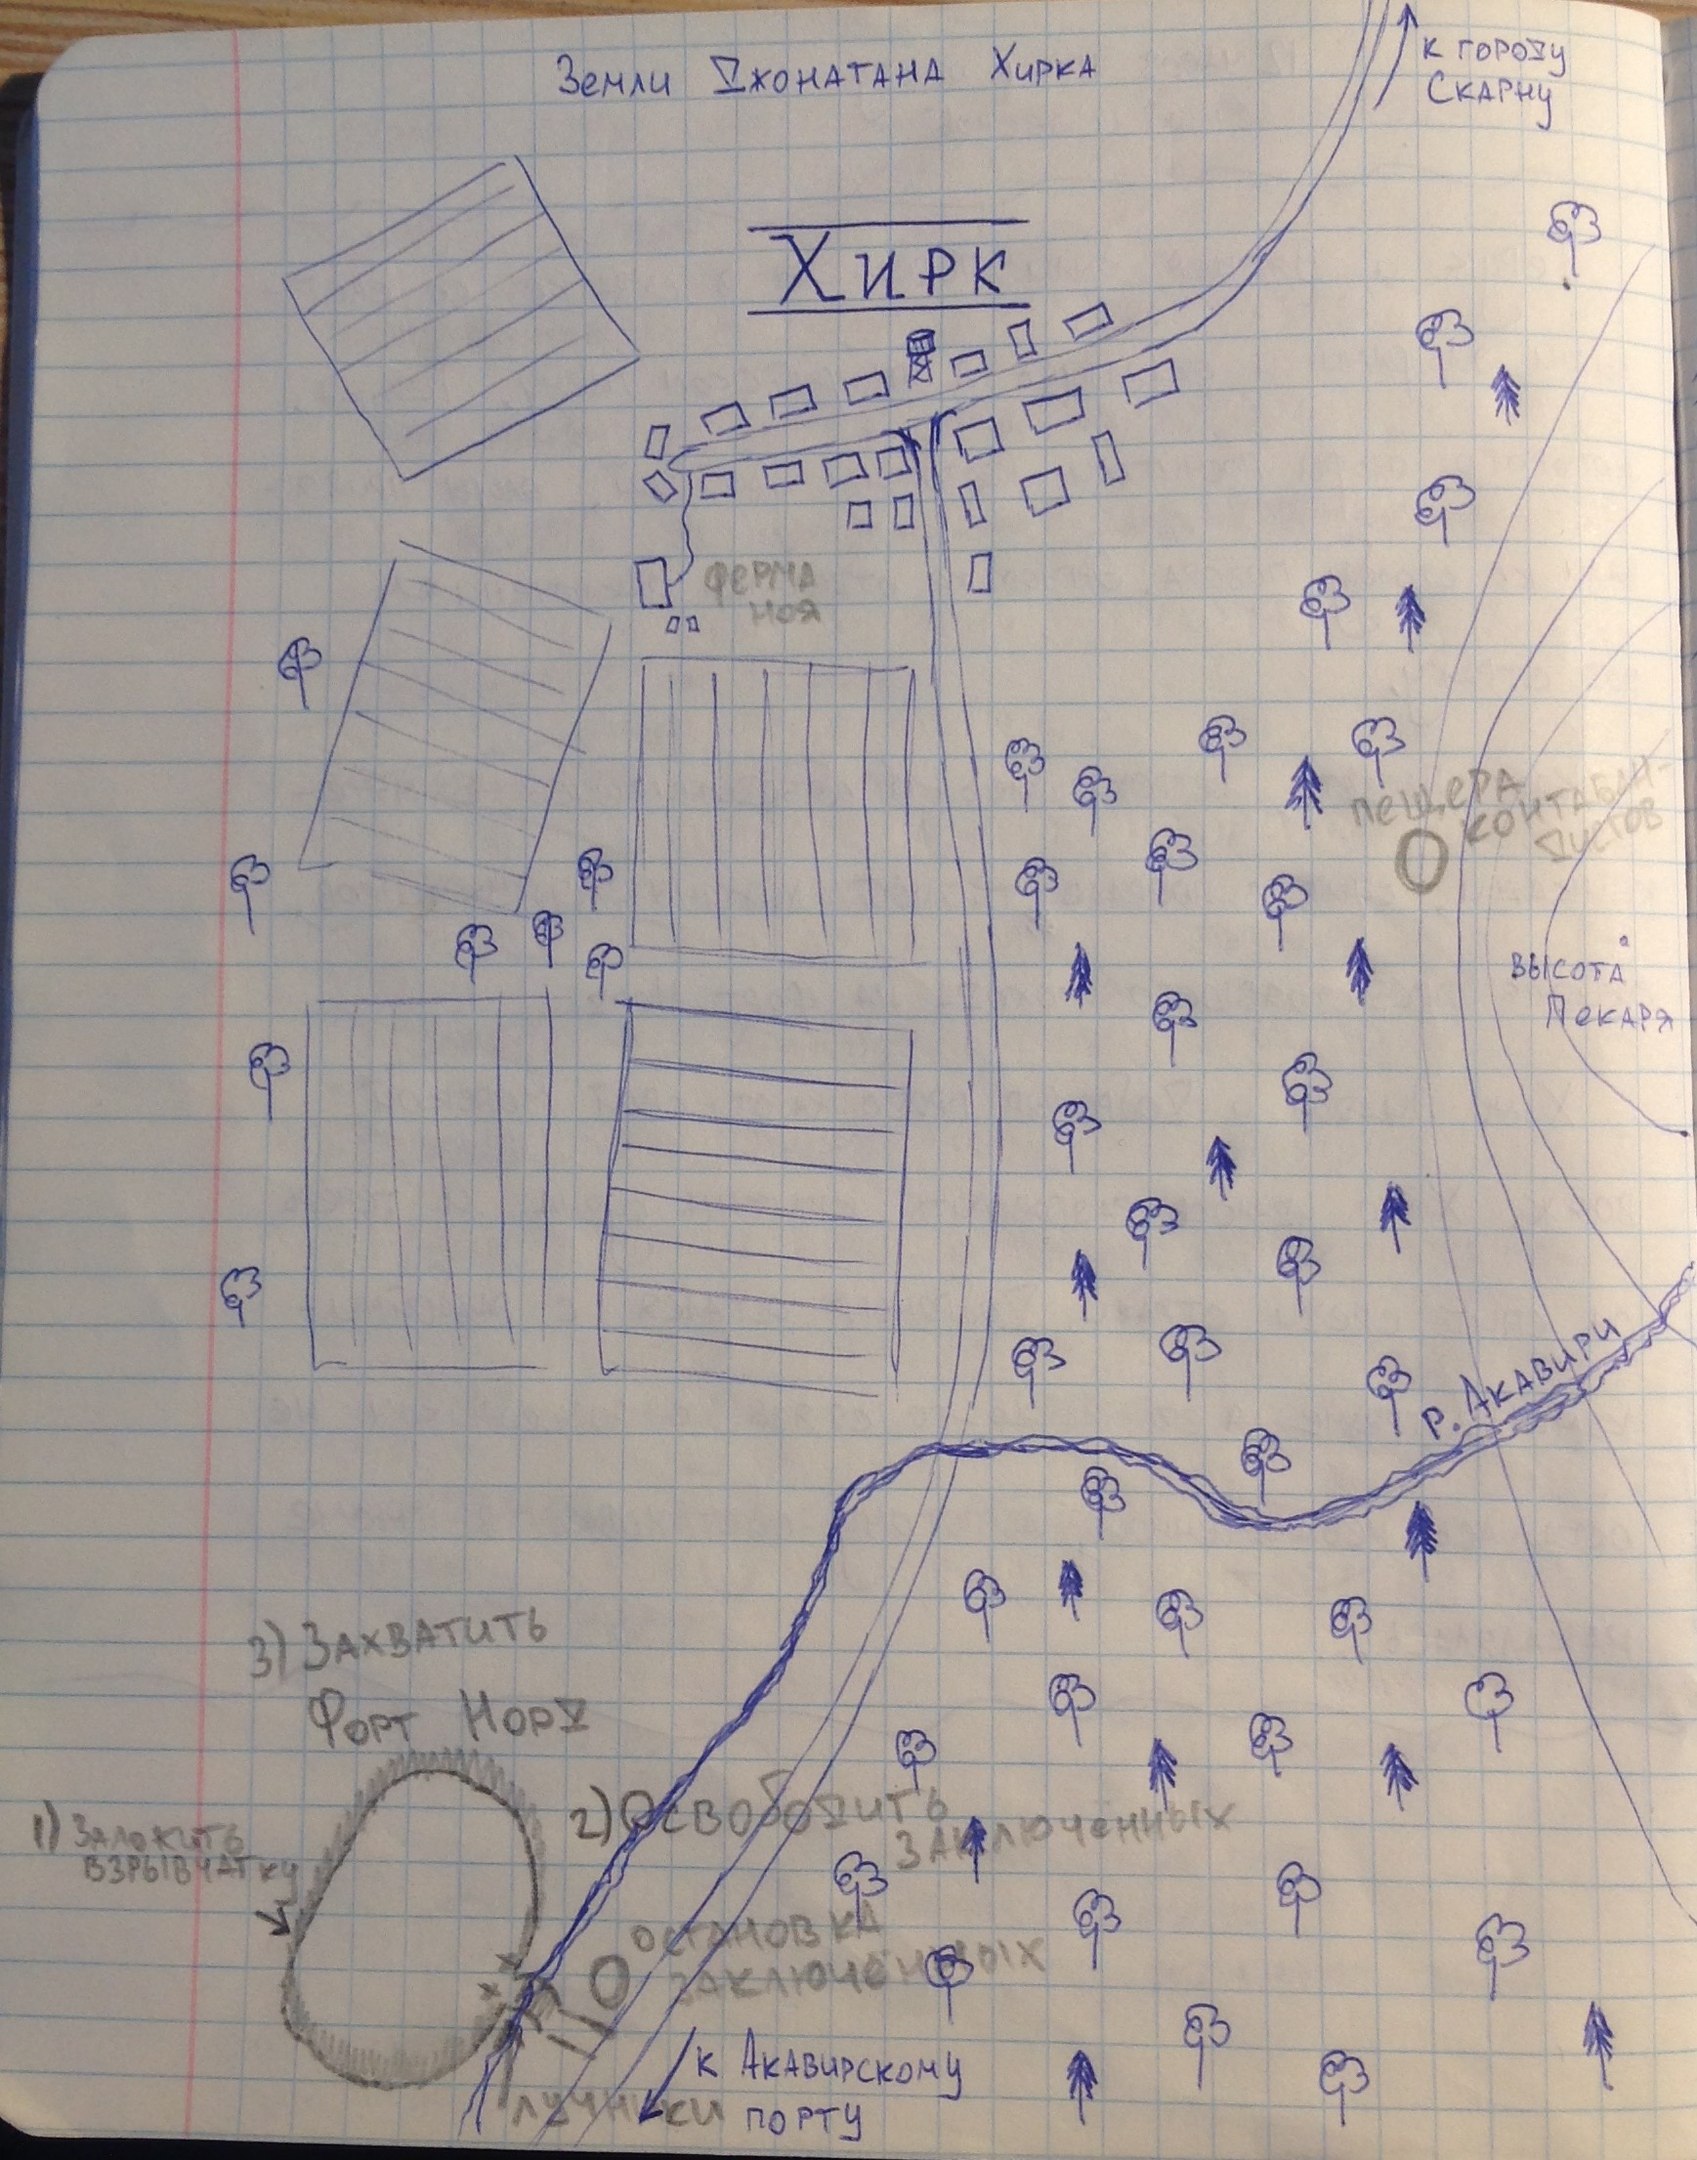 Земли Джонатана Хирка
к городу
Скарну
Хирк
ферма
Ноя
пещера
контабан-
дистов
высота
Пекаря
р. Акавири
3) Захватить
Форт Норд
1) Заложить
взрывчатку
2) Освободить
заключенных
остановка
заключенных
к Акавирскому
порту
лучники